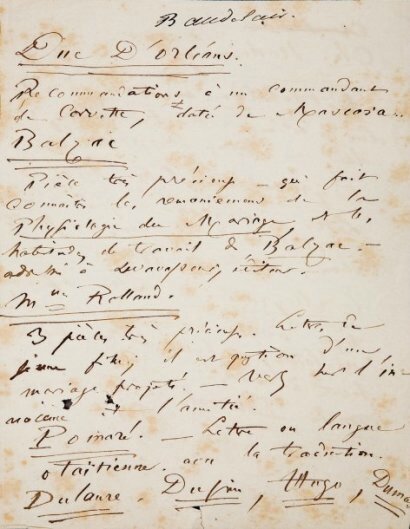 Baudelaire.
Duc D'orléans.
Recommandations à un commandant
de Corvette, daté de Mascara.
Balzac
Pièce très précieuse – qui fait
connaître les remaniements de la
Physiologie du Mariage et les
habitudes de travail de Balzac. –
adressé à Levavasseur, éditeur.
Mme Rolland.
3 pièces très précieuses. Lettres de
jeune fille; il est question d'un
mariage projeté. – Vers sur l'in-
nocence et l'amitié.
Pomaré. – Lettre en langue
otaïtienne. avec la traduction.
Dulaure. Dupin, Hugo, Dumas